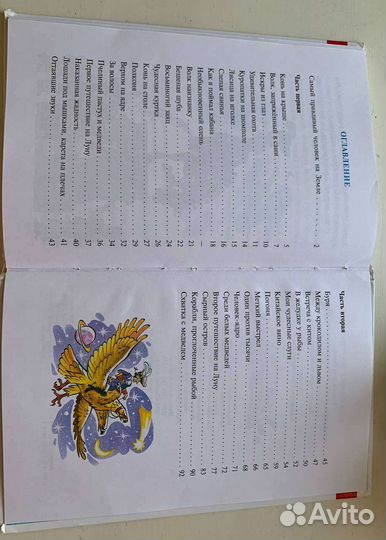 ОГЛАВЛЕНИЕ
Самый правдивый человек на Земле 2
Часть первая
Конь на крыше 5
Волк, запряжённый в сани 7
Искры из глаз 10
Удивительная охота 11
Куропатки на шомполе 14
Лисица на иголке 15
Слепая свинья 16
Как я поймал кабана 18
Необыкновенный олень —
Волк наизнанку 21
Бешеная шуба 22
Восьминогий заяц 24
Чудесная куртка 26
Конь на столе 27
Полконя 29
Верхом на ядре 32
За волосы 34
Пчелиный пастух и медведи 36
Первое путешествие на Луну 37
Наказанная жадность 40
Лошади под мышками, карета на плечах 41
Оттаявшие звуки 43
Часть вторая
Буря 45
Между крокодилом и львом 47
Встреча с китом 50
В желудке у рыбы 52
Мои чудесные слуги 54
Китайское вино 59
Погоня 65
Меткий выстрел 66
Один против тысячи 68
Человек-ядро 71
Среди белых медведей 72
Второе путешествие на Луну 77
Сырный остров 83
Корабли, проглоченные рыбой 90
Схватка с медведем 92
Avito